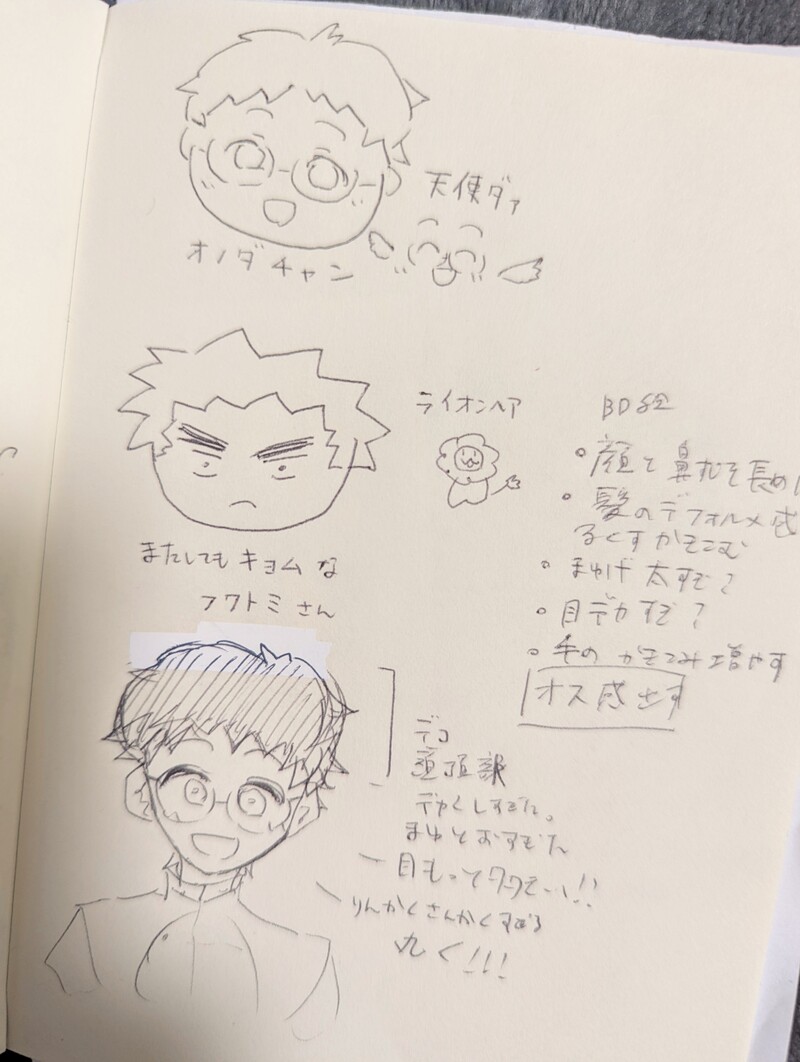 天使ダァ
オノダチャン
ライオンヘア
BD組
•顔と鼻すじを長め
•髪のデフォルメ感
るくすかきこむ
•まゆげ太すぎ?
•目デカすぎ?
•毛の かきこみ増やす
オス感出す
またしても キョム な
フクトミさん
デコ
頭頂部
デカくしすぎた。
目もって
りんかくさんかくすぎる
丸く!!!